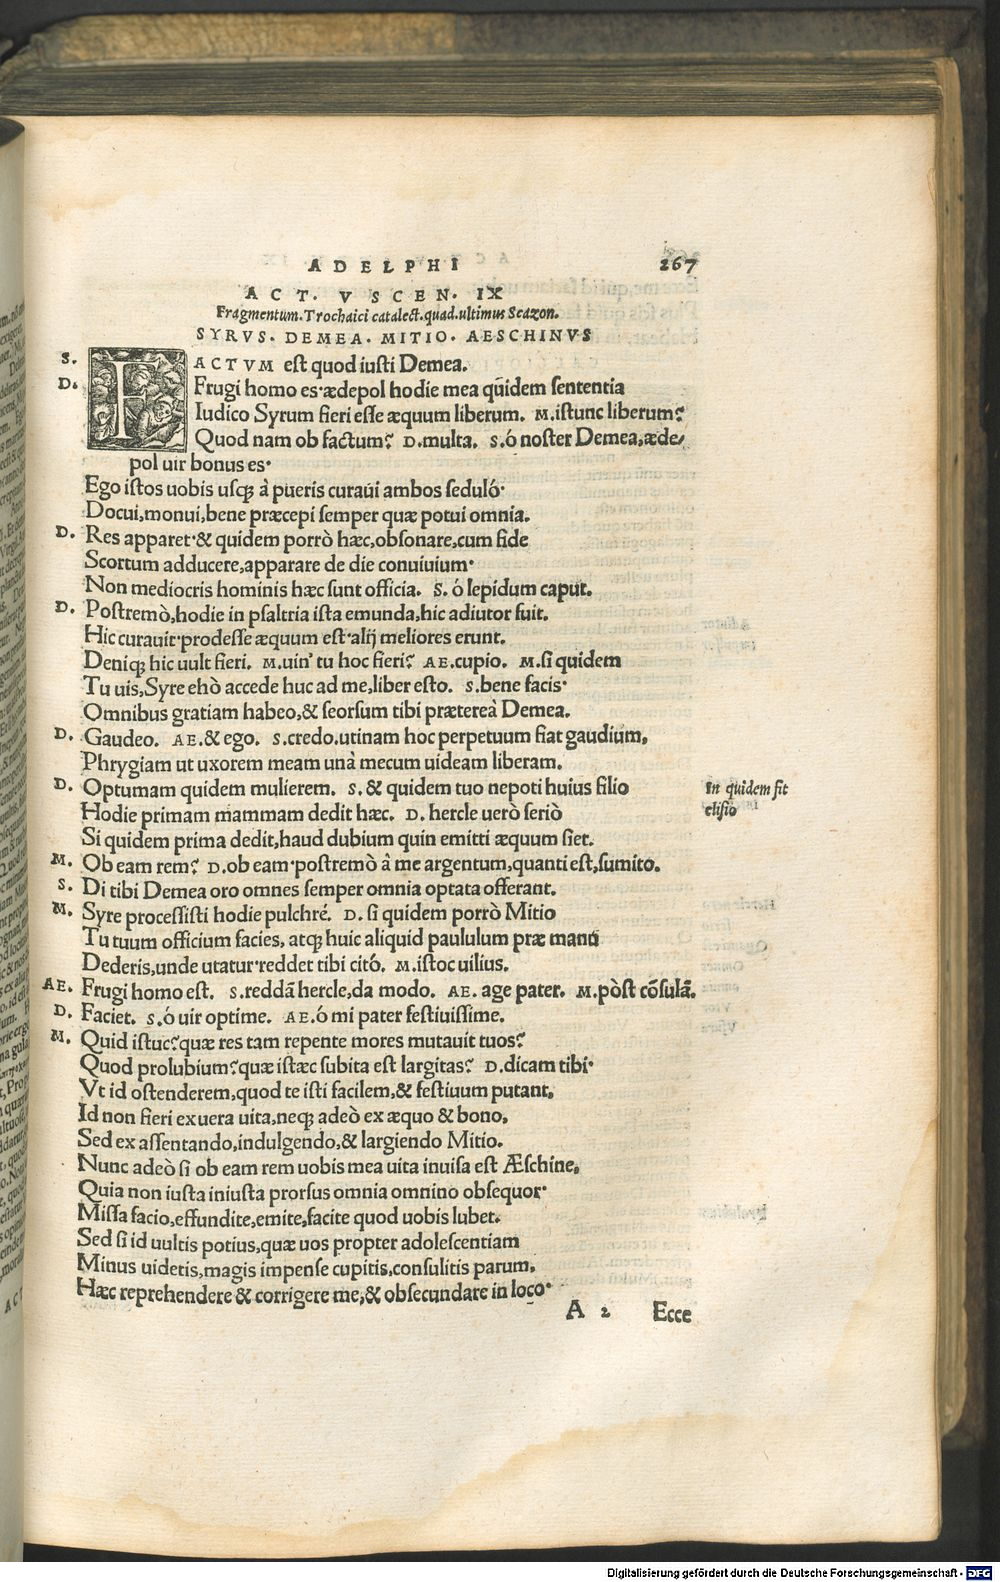 ADELPHI 267
ACT. V SCEN. IX
Fragmentum. Trochaici catalect. quad. ultimus Scazon.
SYRVS. DEMEA. MITIO. AESCHINVS
S. FACTVM est quod iusti Demea.
D. Frugi homo es·ædepol hodie mea quidem sententia
Iudico Syrum fieri esse æquum liberum. M.istunc liberum?
Quod nam ob factum? D.multa. S.ó noster Demea,æde/
pol uir bonus es·
Ego istos uobis usq; à pueris curaui ambos seduló·
Docui,monui,bene præcepi semper quæ potui omnia.
D. Res apparet·& quidem porrò hæc,obsonare,cum fide
Scortum adducere,apparare de die conuiuium·
Non mediocris hominis hæc sunt officia. S. ó lepidum caput.
D. Postremò,hodie in psaltria ista emunda,hic adiutor fuit.
Hic curauit·prodesse æquum est·alij meliores erunt.
Deniq; hic uult fieri. M.uin' tu hoc fieri? AE.cupio. M.si quidem
Tu uis,Syre ehò accede huc ad me,liber esto. S.bene facis·
Omnibus gratiam habeo,& seorsum tibi prætereà Demea.
D. Gaudeo. AE.& ego. S.credo.utinam hoc perpetuum fiat gaudium,
Phrygiam ut uxorem meam unà mecum uideam liberam.
D. Optumam quidem mulierem. S. & quidem tuo nepoti huius filio
In quidem fit
Hodie primam mammam dedit hæc. D. hercle uerò seriò
elisio
Si quidem prima dedit,haud dubium quin emitti æquum siet.
M. Ob eam rem? D.ob eam·postremò à me argentum,quanti est,sumito.
S. Di tibi Demea oro omnes semper omnia optata offerant.
M. Syre processisti hodie pulchré. D. si quidem porrò Mitio
Tu tuum officium facies, atq; huic aliquid paululum præ manu
Dederis,unde utatur·reddet tibi citó. M.istoc uilius.
AE. Frugi homo est. S.reddã hercle,da modo. AE. age pater. M.pòst cõsulã.
D. Faciet. S.ó uir optime. AE.ó mi pater festiuissime.
M. Quid istuc?quæ res tam repente mores mutauit tuos?
Quod prolubium?quæ istæc subita est largitas? D.dicam tibi·
Vt id ostenderem,quod te isti facilem,& festiuum putant,
Id non fieri ex uera uita,neq; adeò ex æquo & bono,
Sed ex assentando,indulgendo,& largiendo Mitio.
Nunc adeò si ob eam rem uobis mea uita inuisa est Æschine,
Quia non iusta iniusta prorsus omnia omnino obsequor·
Missa facio,effundite,emite,facite quod uobis lubet.
Sed si id uultis potius,quæ uos propter adolescentiam
Minus uidetis,magis impense cupitis,consulitis parum,
Hæc reprehendere & corrigere me,& obsecundare in loco·
A 2 Ecce
Digitalisierung gefördert durch die Deutsche Forschungsgemeinschaft - DFG